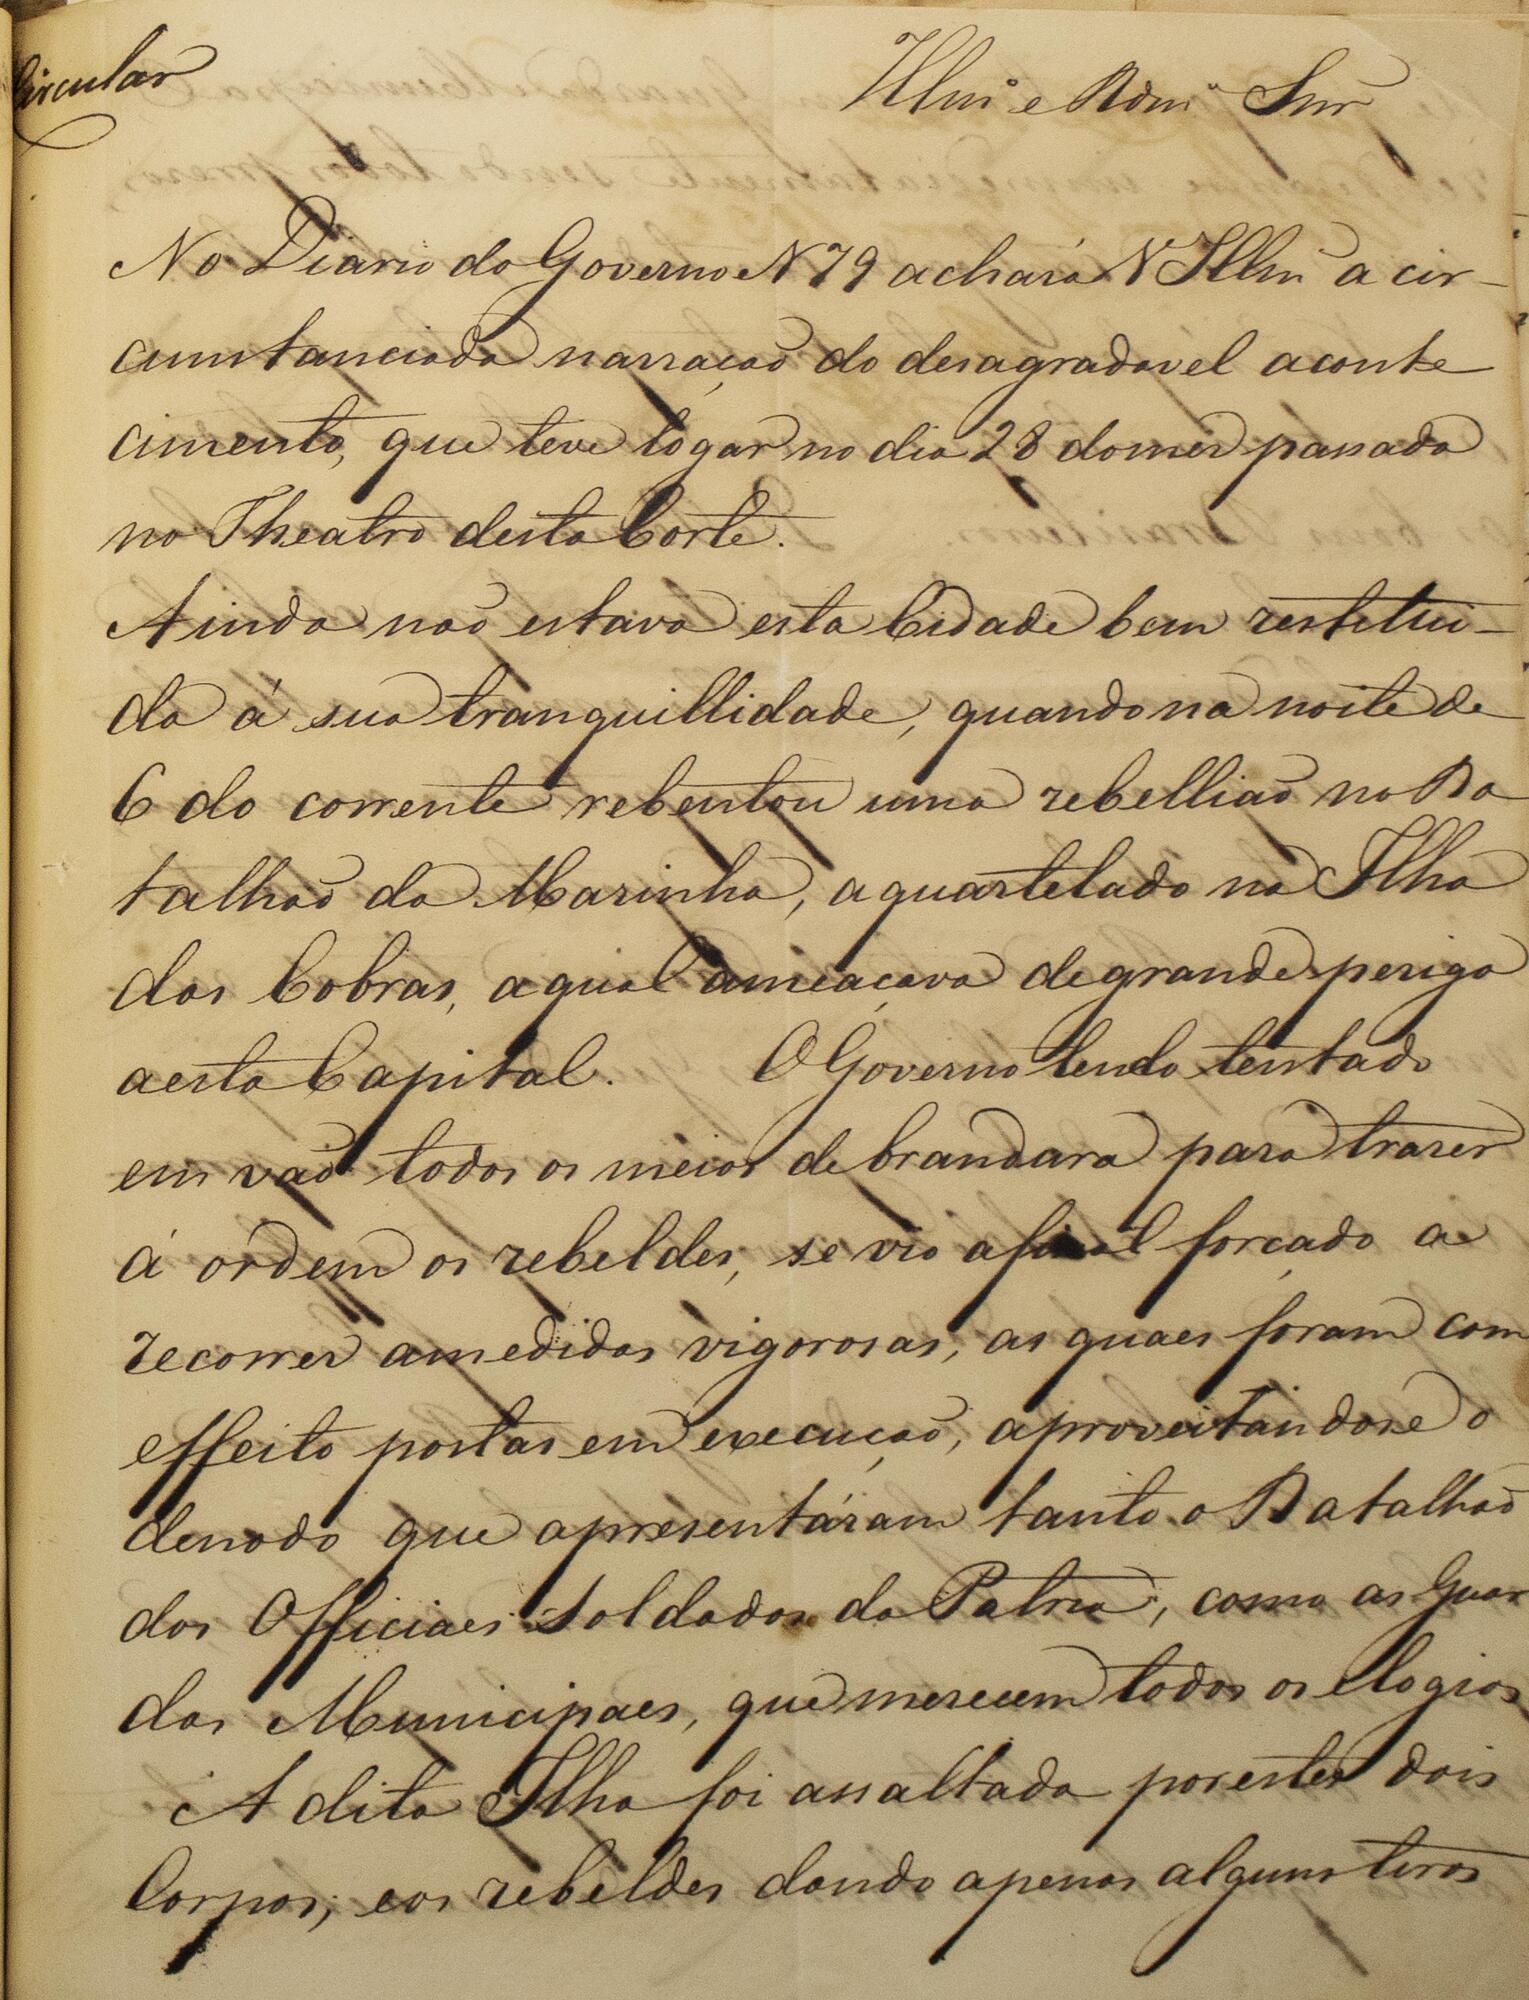 Circular
Illmo e Exmo Snr
No Diario do Governo N 79 achará V Illma a cir-
cumstanciada narração do desagradavel aconte
cimento, que teve logar no dia 28 do mes passado
no Theatro desta Corte.
Ainda não estava esta Cidade bem restitui-
da á sua tranquillidade, quando na noite de
6 do corrente rebentou uma rebellião no Ba
talhão da Marinha, aquartelado na Ilha
das Cobras, a qual ameaçava de grande perigo
a esta Capital. O Governo tendo tentado
em vão todos os meios de brandara para traser
á ordem os rebeldes, se vio afinal forçado a
recorrer a medidas vigorosas, as quaes foram com
effeito postas em execução, aproveitandose o
denodo que apresentáram tanto o Batalhão
dos Officiaes Soldados da Patria, como as Guar
das Municipaes, que merecem todos os elogios
A dita Ilha foi assaltada por estes dois
Corpos, e os rebeldes dando apenas alguns tiros